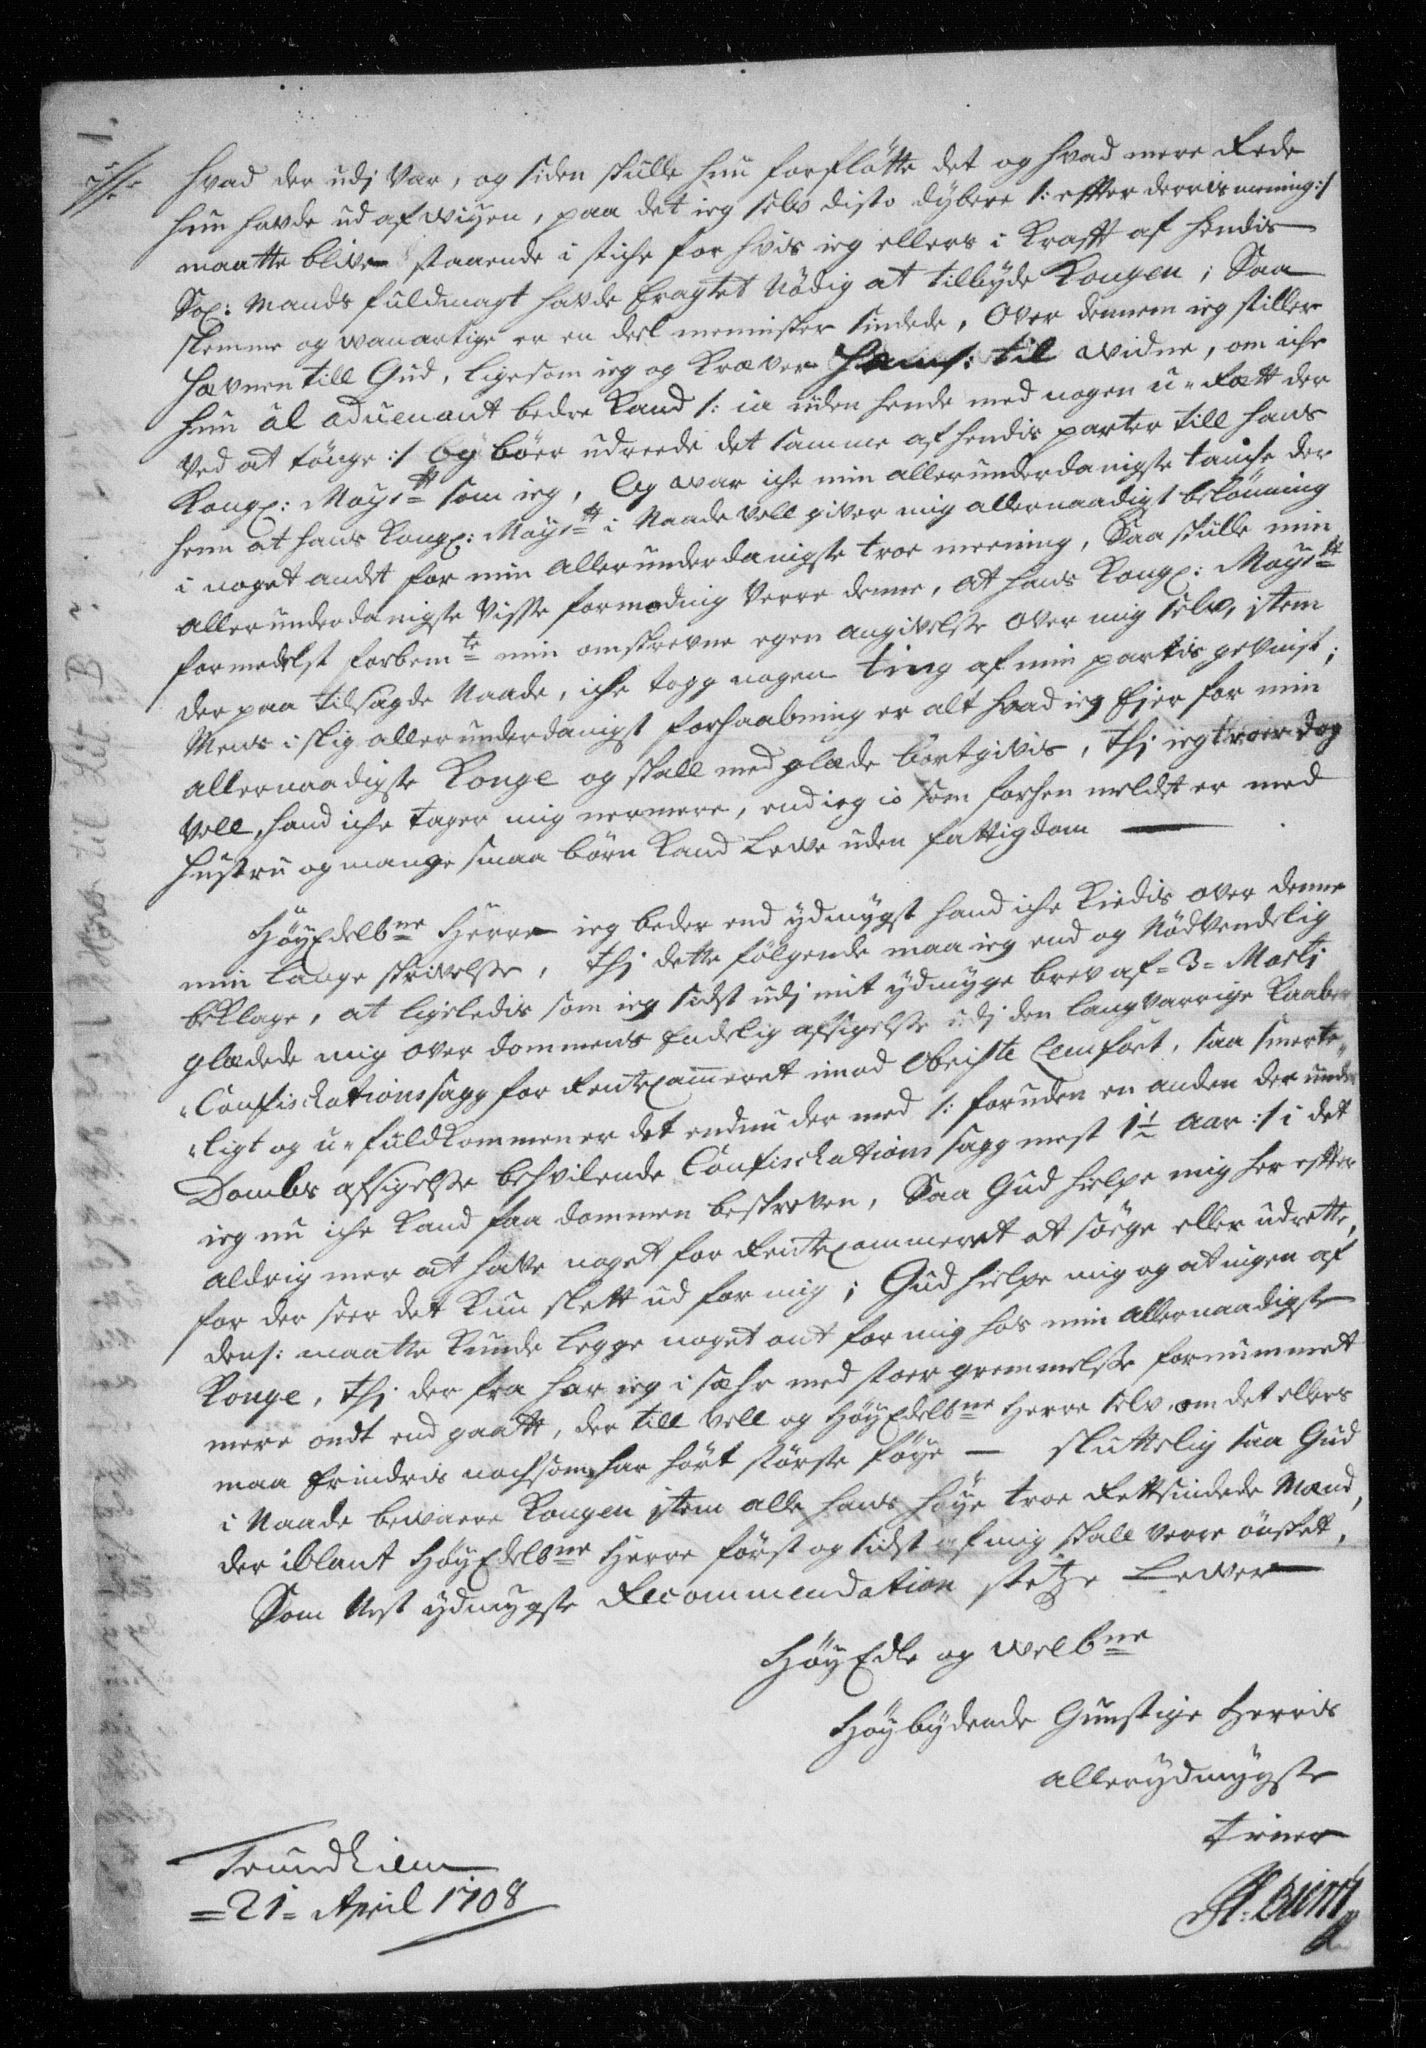 hvad der udj var, og siden skulle hun forfløtte det og hvad mere Rede
hun havde ud af wejen, paa det jeg selv disto dybere /: effter derris mening :/
maatte blive staaende i stiche for hvis jeg ellers i Krafft af hendis
Sal: Mands fuldmagt havde Eragtet Nödig at tilbyde Kongen; Saa
slemme og wanartige er en deel mennisker sindede, Over dennem jeg stiller
Hævnen till Gud, ligesom jeg og Kræver Hans: til widne, om iche
hun al aduenant bedre Kand /: ia uden hende med nogen u-Rætt der
ved at tönge :/ Og böer udreede det samme af hendis parter till hans
Kongl: Mayst: som jeg, Og war iche min allerunderdanigste tanche der
henn at hans Kongl: Mayst: i Naade vell giver mig allernaadigst belönning
i noget andet for min allerunderdanigste troe meening, Saa skulle min
allerunderdanigste Visse formodning Verre denne, at hans Kongl: Mayst:
formedelst forbemte min omskrevne egen angivelsse over mig selv, item
der paa tilsagde Naade, iche togg nogen ting af min partis gevinst;
Mens i slig allerunderdanigst forhaabning er alt hvad jeg Ejer for min
allernaadigste Konge og skall med glæde bortgivis, thj jeg troer dog
Vell, hand iche tager mig nermere, end jeg io som forhen meldt er med
Hustru og mange smaa börn Kand Leve uden fattigdom
HöyEdelbne Herre jeg beder end ydmygst hand iche Kiedis over denne
min lange skrivelsse, thj dette fölgende maa jeg end og Nödvendelig
beklage, at ligeledis som jeg sidst udj mit ydmyge brev af =3= Martj
glædede mig over dommens Endelig afsigelsse udj den langvarrige Kaaber
Confischations sagg for RenteCammeret imod Obriste Cemfort, saa smerte-
ligt og u-fuldkommen er det endnu der med /: foruden en anden der under
Dombs afsigelsse behvilende Confischations sagg mest 1½ Aar :/ i det
jeg nu iche Kand faa dommen beskreven, Saa Gud hielpe mig her effter
aldrig mer at have noget for RenteCammeret at söge eller udrette,
for der seer det Kun slett ud for mig; Gud hielpe mig og at ingen af
dens: maatte Kunde legge noget ont for mig hos min allernaadigste
Konge, thj der fra har jeg i sæhr med stoer gremmelsse fornummet
mere ondt end gaatt, der till vell og HöyEdelbne Herre selv, om det ellers
maa Erindris nochsom har hört störste föye — sluttelig saa Gud
i Naade bevaere Kongen item alle hans höye troe Rettsindede Mænd,
der iblant HöyEdelbne Herre först og sidst af mig skall verre önsket,
Som Nest ydmygste Recommendation stetze Lever
HöyEdle og Welbne
Höybydende Gunstige Herris
allerydmygste
tiener
Trundhiem
=21= April 1708